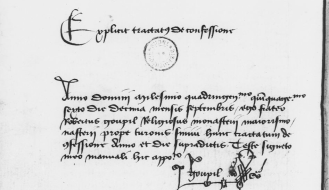 Explicit tractatꝰ de confessione
Anno domini milesimo quadringenmo quiquagemo
sexto die decima mensis septembris ego frater
robertus goupil Religiosus monasterii maioris mo-
nasterii prope turonis finiui hunc tractatum de
9fessione Anno et die supradictis Teste signeto
meo manuali hic appoto
goupil